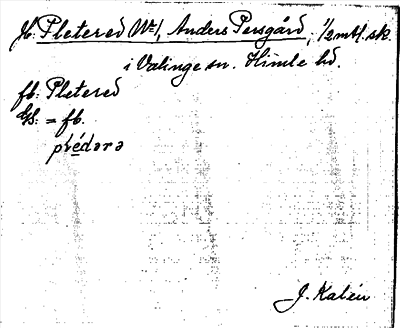 Jb: Pletered No 1, Anders Persgård, 1/2 mtl. sk.
i Valinge sn. Himle hd.
fb: Pletered
GS: = fb.
plédərə
J. Kalén